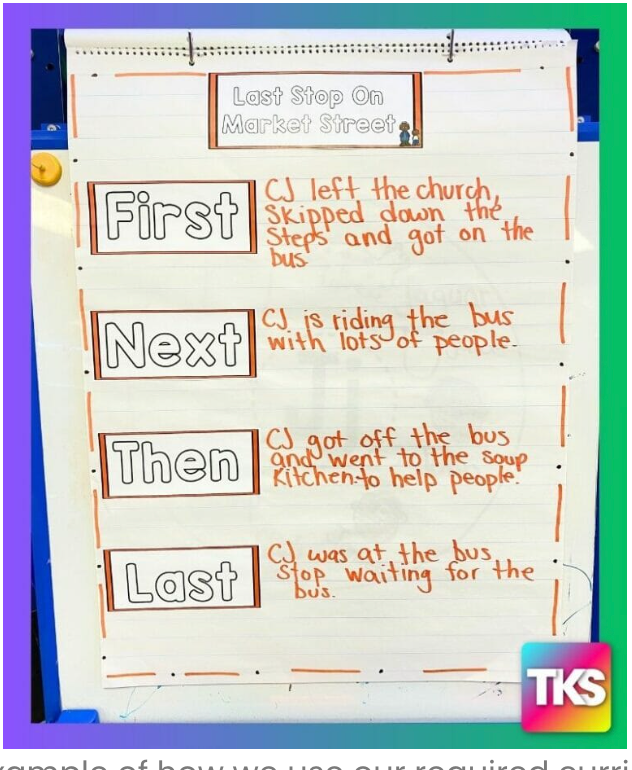 Last Stop On
Market Street
First
CJ left the church,
Skipped down the
Steps and got on the
bus.
Next
CJ is riding the bus
with lots of people.
Then
CJ got off the bus
and went to the soup
Kitchen to help people.
Last
CJ was at the bus
Stop waiting for the
bus.
TKS